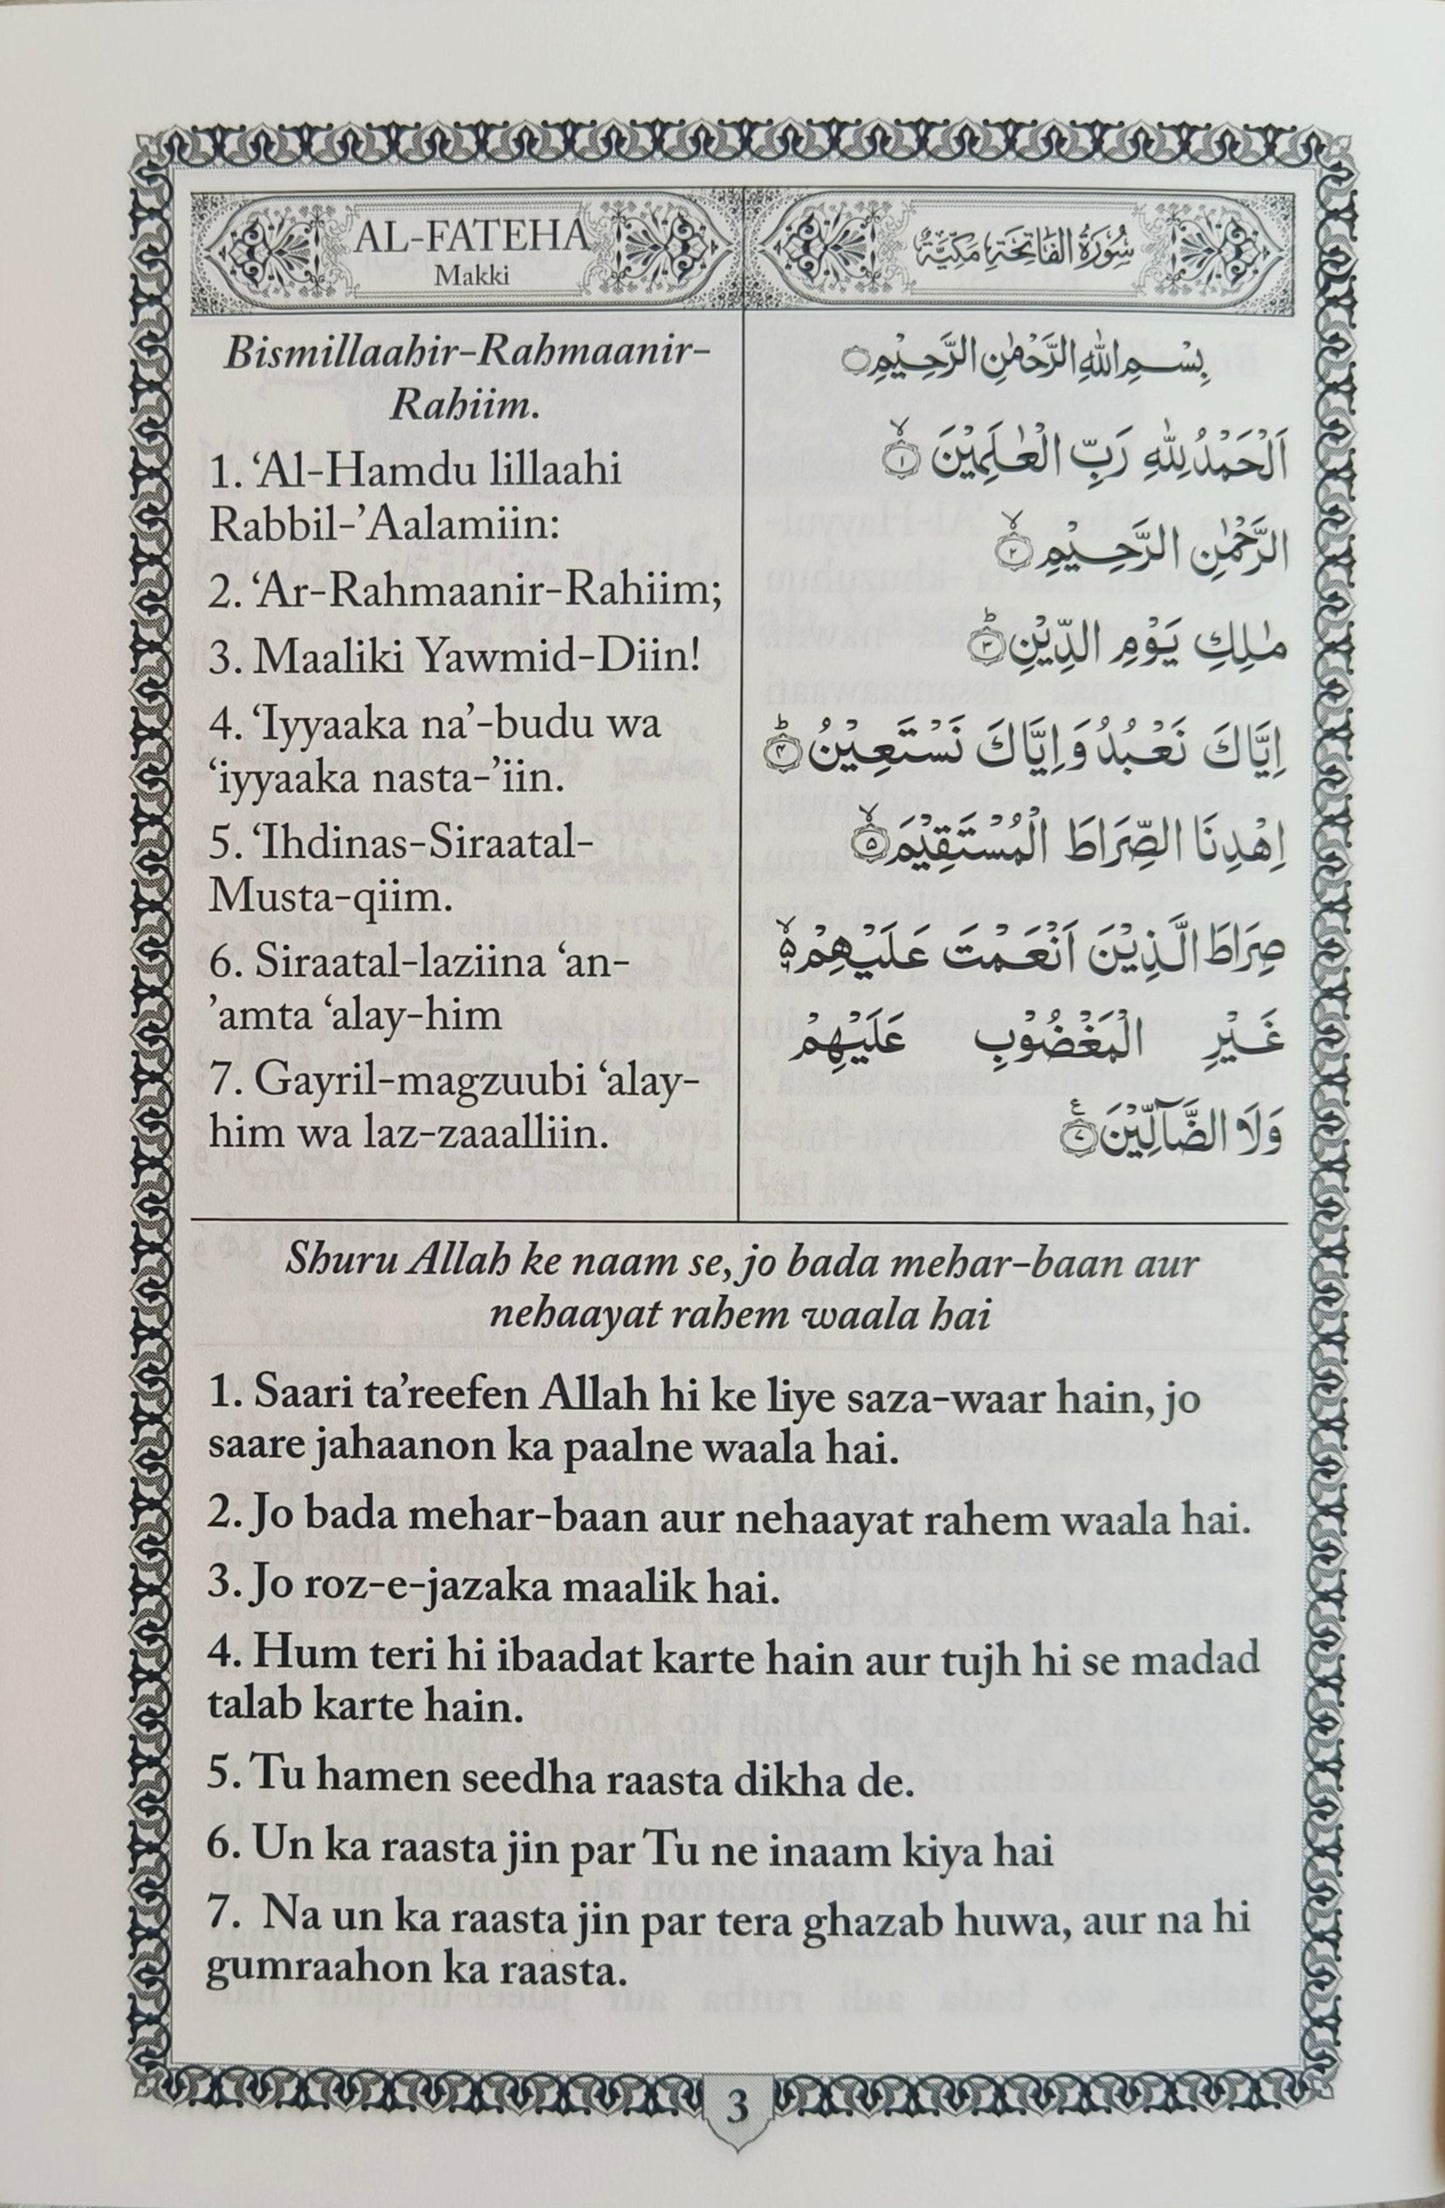 AL-FATEHA
Makki
سُوۡرَةُ الفَاتِحَةِ مَكِّيَّةٌ
Bismillaahir-Rahmaanir-
Rahiim.
1. ‘Al-Hamdu lillaahi
Rabbil-’Aalamiin:
2. ‘Ar-Rahmaanir-Rahiim;
3. Maaliki Yawmid-Diin!
4. ‘Iyyaaka na’-budu wa
‘iyyaaka nasta-’iin.
5. ‘Ihdinas-Siraatal-
Musta-qiim.
6. Siraatal-laziina ‘an-
’amta ‘alay-him
7. Gayril-magzuubi ‘alay-
him wa laz-zaaalliin.
بِسۡمِ اللّٰهِ الرَّحۡمٰنِ الرَّحِيۡمِ
اَلۡحَمۡدُ لِلّٰهِ رَبِّ الۡعٰلَمِيۡنَ ۙ‏﴿۱﴾
الرَّحۡمٰنِ الرَّحِيۡمِ ۙ‏﴿۲﴾
مٰلِكِ يَوۡمِ الدِّيۡنِ ؕ‏﴿۳﴾
اِيَّاكَ نَعۡبُدُ وَاِيَّاكَ نَسۡتَعِيۡنُ ؕ‏﴿۴﴾
اِهۡدِنَا الصِّرَاطَ الۡمُسۡتَقِيۡمَ ۙ‏﴿۵﴾
صِرَاطَ الَّذِيۡنَ اَنۡعَمۡتَ عَلَيۡهِمۡ ۙ۵
غَيۡرِ الۡمَغۡضُوۡبِ عَلَيۡهِمۡ
وَلَا الضَّآلِّيۡنَ ‏﴿۷﴾
Shuru Allah ke naam se, jo bada mehar-baan aur
nehaayat rahem waala hai
1. Saari ta’reefen Allah hi ke liye saza-waar hain, jo
saare jahaanon ka paalne waala hai.
2. Jo bada mehar-baan aur nehaayat rahem waala hai.
3. Jo roz-e-jazaka maalik hai.
4. Hum teri hi ibaadat karte hain aur tujh hi se madad
talab karte hain.
5. Tu hamen seedha raasta dikha de.
6. Un ka raasta jin par Tu ne inaam kiya hai
7. Na un ka raasta jin par tera ghazab huwa, aur na hi
gumraahon ka raasta.
3